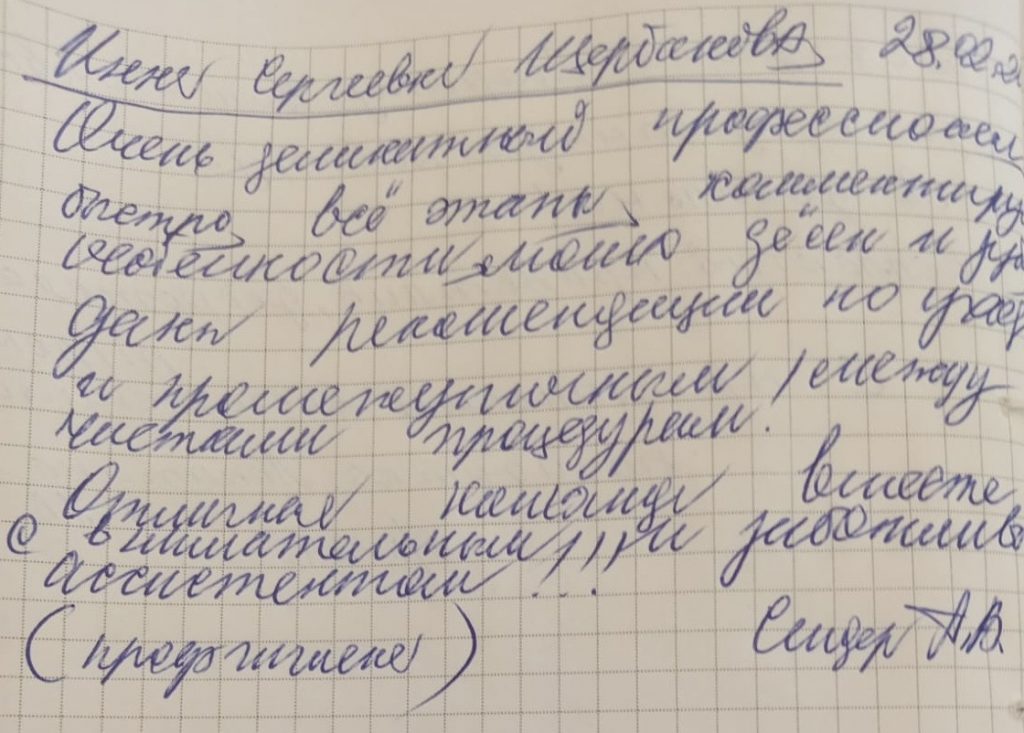 Инна Сергеевна Щербакова 28.02.2
Очень деликатный профессионал,
быстро, всё этапы, комментиру
особенности моих дёсен и зуб
даны рекомендации по уход
и промежуточным / между
чистками процедурам.
Отличная команда вместе
с внимательным и заботлив
ассистентом !!!
(профгигиена)
Сидер А.В.